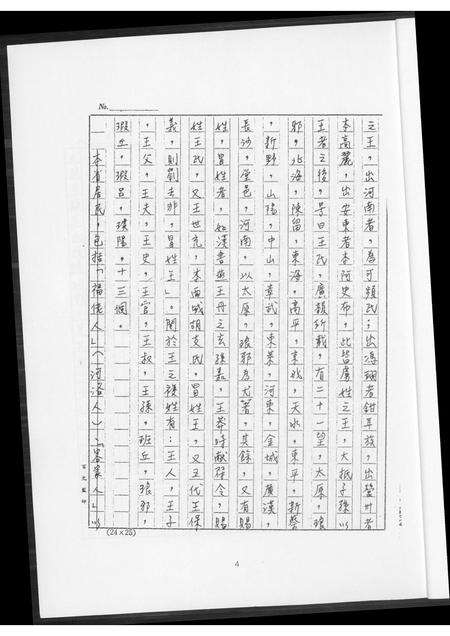 No.
之王，出河南者，為可頻氏；出馮翊者鉗耳族，出營州者
本高麗，出安東者本阿史布，此皆虜姓之王，大抵子孫以
王者之後，號曰王氏，廣韻所載，有二十一望，太原，琅
邪，北海，陳留，東海，高平，京兆，天水，東平，新蔡
，新野，山陽，中山，章武，東萊，河東，金城，廣漢，
長沙，堂邑，河南，以太原，琅邪為尤著，其餘，又有賜
姓，冒姓者，如漢書燕王丹之玄孫嘉，王莽時獻符令，賜
姓王氏，又王世充，本西域胡支氏，冒姓王，又五代王保
義，則劉去非，冒姓王」。關於王之複姓有：王人，王子
，王父，王夫，王史，王官，王叔，王孫，班丘，琅邪，
瑕丘，瑕呂，璞陽，十三個。
本省居民，包括「福佬人」（河洛人）、「客家人」以
(24×25)
4